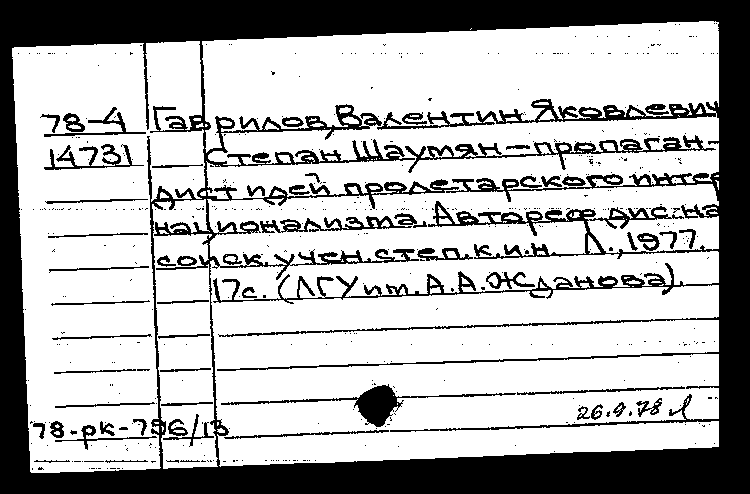 78-4 Гаврилов, Валентин Яковлевич
14731 Степан Шаумян - пропаган-
дист идей пролетарского интер
национализма. Автореф. дис. на
соиск. учен. степ. к.и.н. Л., 1977.
17с. (ЛГУ им. А.А. Жданова).
26.9.78
78-рк-796/13